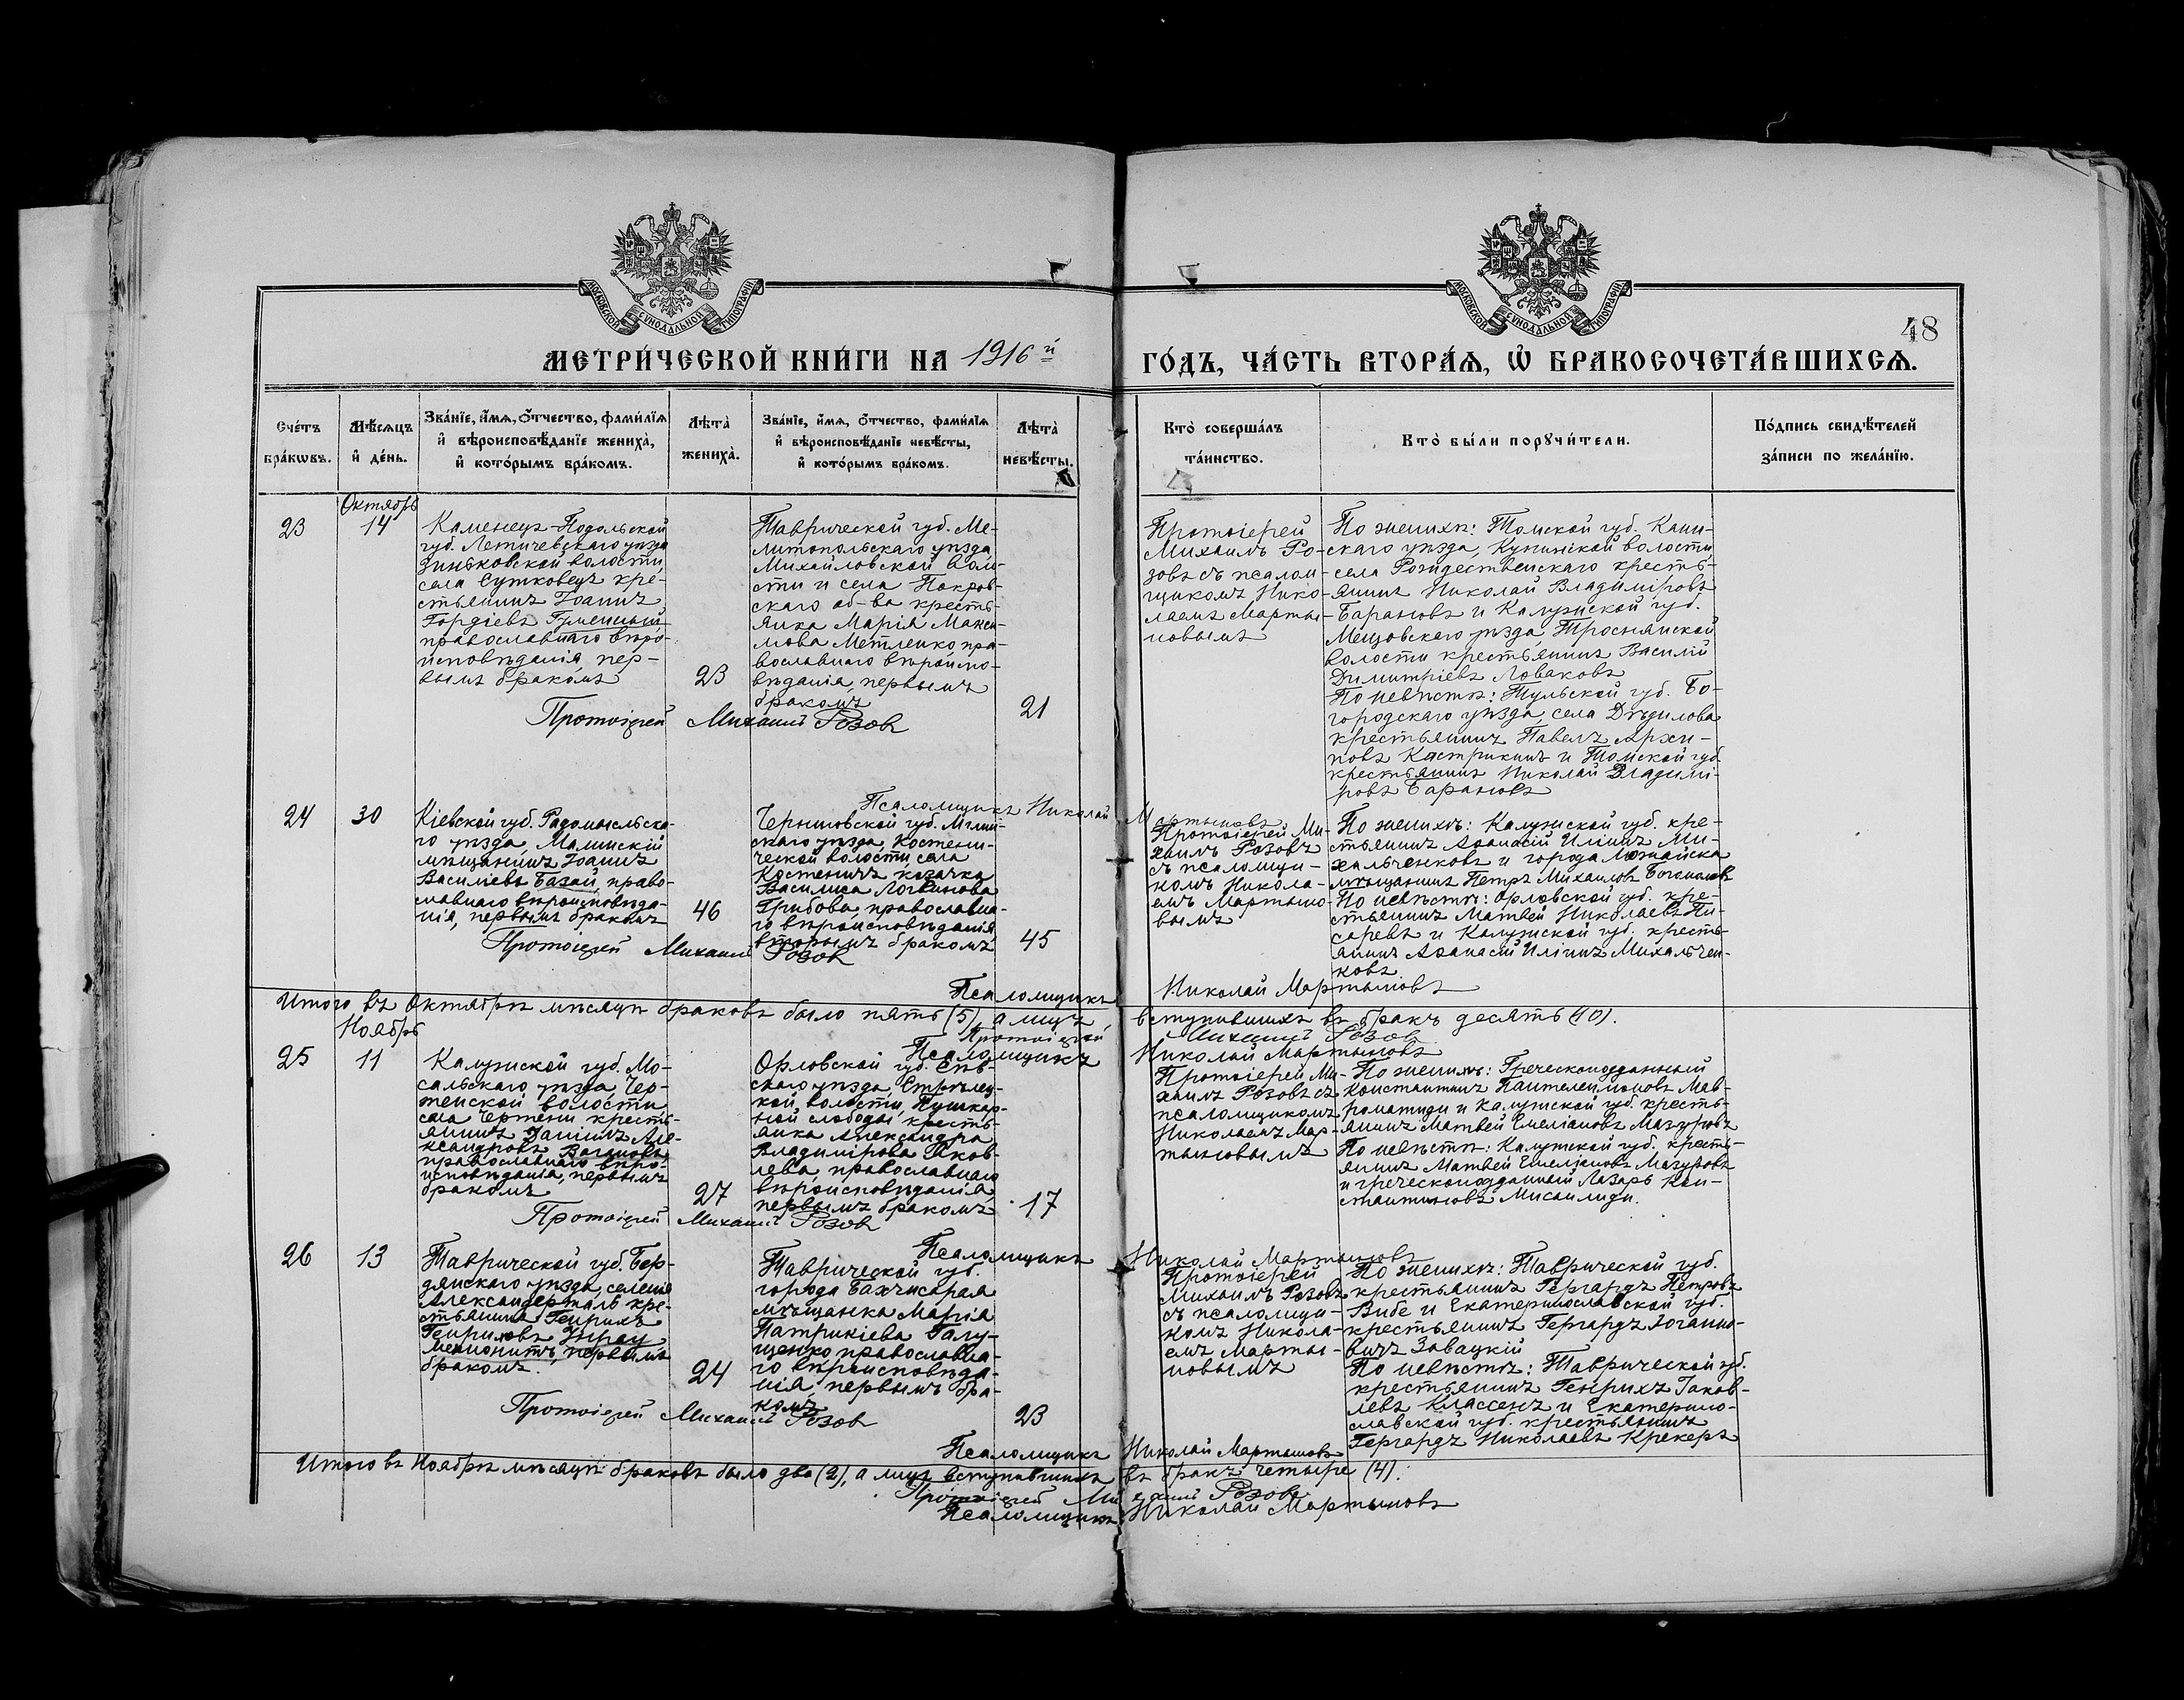 МОСКОВСКОЙ СѴНОДАЛЬНОЙ ТИПОГРАФІИ
МОСКОВСКОЙ СѴНОДАЛЬНОЙ ТИПОГРАФІИ
48
МЕТРИ́ЧЕСКОЙ КНИ́ГИ НА 1916й
ГО́ДЪ, ЧА́СТЬ ВТОРА́Ѧ, Ѡ҆ БРАКОСОЧЕТА́ВШИХСѦ.
Сче́тъ
бра́кѡвъ.
Мѣ́сѧцъ
и҆ де́нь.
Зва́нїе, и҆́мѧ, ѻ҆́тчество, фами́лїѧ
и҆ вѣроисповѣ́данїе жениха̀,
и҆ кото́рымъ бра́комъ.
Лѣ́та̀
жениха̀.
Зва́нїе, и҆́мѧ, ѻ҆́тчество, фами́лїѧ
и҆ вѣроисповѣ́данїе невѣ́сты,
и҆ кото́рымъ бра́комъ.
Лѣ́та̀
невѣ́сты.
Кто̀ соверша́лъ
та́инство.
Кто̀ бы́ли порꙋчи́тели.
По́дпись свидѣ́телей
за́писи по жела́нїю.
Октябрь
23
14
Каменецъ-Подольской
губ. Летичевскаго уѣзда
Зиньковской волости,
села Сутковецъ кре-
стьянинъ Іоаннъ
Гордіевъ Гуменный
православнаго вѣро-
исповѣданія, пер-
вымъ бракомъ
23
Таврической губ. Ме-
литопольскаго уѣзда,
Михайловской воло-
сти и села Покров-
скаго об-ва кресть-
янка Марія Макси-
мова Метленко, пра-
вославнаго вѣроиспо-
вѣданія, первымъ
бракомъ
21
Протоіерей Михаилъ Розовъ
Протоіерей
Михаилъ Ро-
зовъ съ псалом-
щикомъ Нико-
лаемъ Марты-
новымъ
По женихѣ: Томской губ. Каин-
скаго уѣзда, Купинской волости,
села Рождественскаго кресть-
янинъ Николай Владиміровъ
Барановъ и Калужской губ.
Мещовскаго уѣзда, Троснянской
волости крестьянинъ Василій
Димитріевъ Ловаковъ
По невѣстѣ: Тульской губ. Бо-
городскаго уѣзда, села Дѣдилова
крестьянинъ Павелъ Архи-
повъ Кастрикинъ и Томской губ.
крестьянинъ Николай Владимі-
ровъ Барановъ
Псаломщикъ Николай Мартыновъ
24
30
Кіевской губ. Радомысльска-
го уѣзда, Малинскій
мѣщанинъ Іоаннъ
Василіевъ Базай, право-
славнаго вѣроисповѣда-
нія, первымъ бракомъ
46
Черниговской губ. Мглин-
скаго уѣзда, Костени-
ческой волости, села
Костеничъ казачка
Василиса Логвинова
Грибова, православна-
го вѣроисповѣданія,
вторымъ бракомъ
45
Протоіерей Михаилъ Розовъ
Протоіерей Ми-
хаилъ Розовъ
съ псаломщи-
комъ Никола-
емъ Мартыно-
вымъ
По женихѣ: Калужской губ. кре-
стьянинъ Аѳанасій Иліинъ Ми-
хальченковъ и города Можайска
мѣщанинъ Петръ Михаиловъ Богомоловъ
По невѣстѣ: Орловской губ. кре-
стьянинъ Матвей Николаевъ Пи-
саревъ и Калужской губ. кресть-
янинъ Аѳанасій Иліинъ Михальчен-
ковъ
Псаломщикъ Николай Мартыновъ
Итого въ Октябрѣ мѣсяцѣ браковъ было пять (5), а лицъ вступившихъ въ бракъ десять (10).
Протоіерей Михаилъ Розовъ
Псаломщикъ Николай Мартыновъ
Ноябрь
25
11
Калужской губ. Мо-
сальскаго уѣзда, Чер-
тенской волости
села Чертени кресть-
янинъ Даніилъ Але-
ксандровъ Вагановъ
православнаго вѣро-
исповѣданія, первымъ
бракомъ
27
Орловской губ. Сѣв-
скаго уѣзда, Стрѣлец-
кой волости, Пушкар-
ной слободы кресть-
янка Александра
Владимірова Яков-
лева, православнаго
вѣроисповѣданія,
первымъ бракомъ
17
Протоіерей Михаилъ Розовъ
Протоіерей Ми-
хаилъ Розовъ съ
псаломщикомъ
Николаемъ Мар-
тыновымъ
По женихѣ: Греческоподданный
Константинъ Пантелеимоновъ Мав-
роматиди и Калужской губ. кресть-
янинъ Матвей Емеліановъ Мазуровъ
По невѣстѣ: Калужской губ. кресть-
янинъ Матвей Емеліановъ Мазуровъ
и греческоподданный Лазарь Кон-
стантиновъ Мисаилиди.
Псаломщикъ Николай Мартыновъ
26
13
Таврической губ. Бер-
дянскаго уѣзда, селенія
Александерталь кре-
стьянинъ Генрихъ
Генриховъ Унрау
менонитъ, первымъ
бракомъ.
24
Таврической губ.
города Бахчисарая
мѣщанка Марія
Патрикіева Галу-
щенко православна-
го вѣроисповѣда-
нія, первымъ бра-
комъ
23
Протоіерей Михаилъ Розовъ
Протоіерей
Михаилъ Розовъ
съ псаломщи-
комъ Никола-
емъ Марты-
новымъ
По женихѣ: Таврической губ.
крестьянинъ Гергардъ Петровъ
Вибе и Екатеринославской губ.
крестьянинъ Гергардъ Іоганно-
вичъ Завацкій
По невѣстѣ: Таврической губ.
крестьянинъ Генрихъ Іаков-
левъ Классенъ и Екатерино-
славской губ. крестьянинъ
Гергардъ Николаевъ Крекеръ
Псаломщикъ Николай Мартыновъ
Итого въ Ноябрѣ мѣсяцѣ браковъ было два (2), а лицъ вступившихъ въ бракъ четыре (4).
Протоіерей Михаилъ Розовъ
Псаломщикъ Николай Мартыновъ